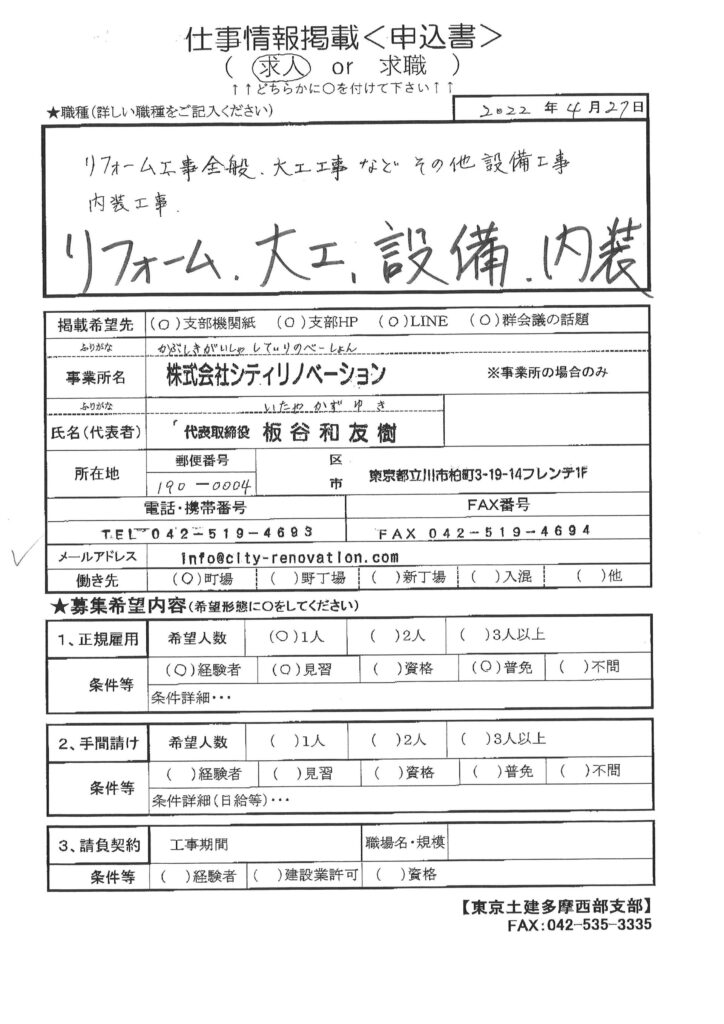 仕事情報掲載＜申込書＞
( 求人 or 求職 )
↑↑どちらかに○を付けて下さい↑↑
★職種(詳しい職種をご記入ください)
2022 年 4 月 27 日
リフォーム工事全般、大工工事 など その他 設備工事
内装工事.
リフォーム、大工、設備、内装
掲載希望先 (○)支部機関紙 (○)支部HP (○)LINE (○)群会議の話題
ふりがな かぶしきがいしゃ してぃりのべーしょん
事業所名 株式会社シティリノベーション ※事業所の場合のみ
ふりがな いたや かず ゆき
氏名(代表者) 代表取締役 板谷和友樹
所在地 郵便番号 区
190-0004 市 東京都立川市柏町3-19-14フレンテ1F
電話・携帯番号 FAX番号
TEL 042-519-4693 FAX 042-519-4694
メールアドレス info@city-renovation.com
働き先 (○)町場 ( )野丁場 ( )新丁場 ( )入混 ( )他
★募集希望内容(希望形態に○をしてください)
1、正規雇用 希望人数 (○)1人 ( )2人 ( )3人以上
条件等 (○)経験者 (○)見習 ( )資格 (○)普免 ( )不問
条件詳細・・・
2、手間請け 希望人数 ( )1人 ( )2人 ( )3人以上
条件等 ( )経験者 ( )見習 ( )資格 ( )普免 ( )不問
条件詳細(日給等)・・・
3、請負契約 工事期間 職場名・規模
条件等 ( )経験者 ( )建設業許可 ( )資格
【東京土建多摩西部支部】
FAX:042-535-3335